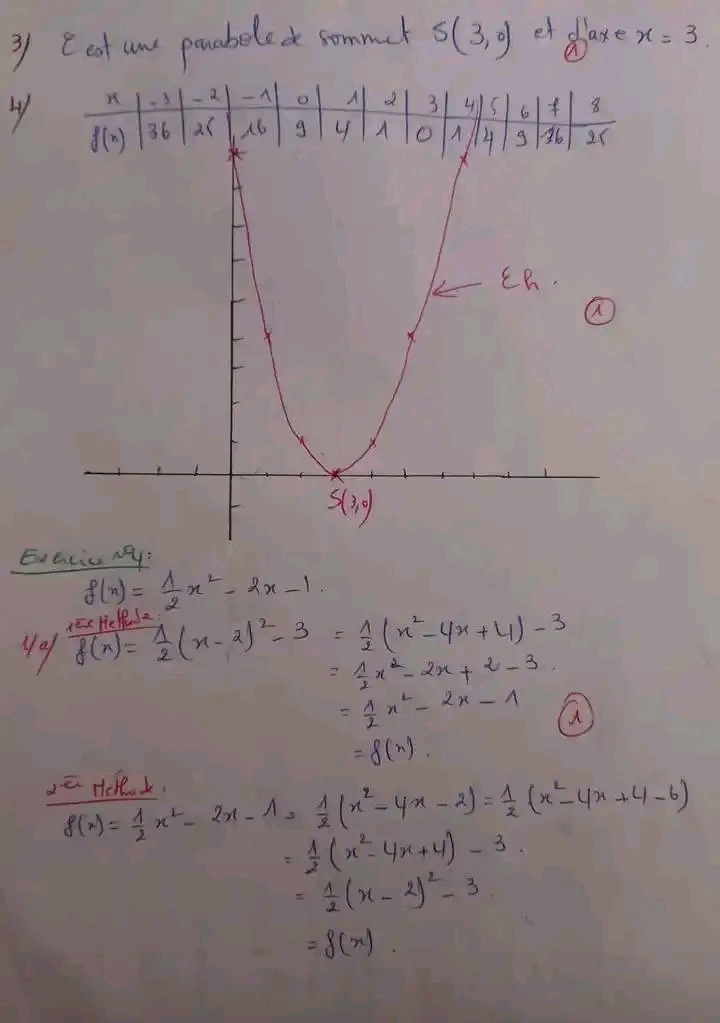 3) ξ est une parabole de sommet S(3,0) et d'axe x = 3.
①
4) x | -3 | -2 | -1 | 0 | 1 | 2 | 3 | 4 | 5 | 6 | 7 | 8
f(x) | 36 | 25 | 16 | 9 | 4 | 1 | 0 | 1 | 4 | 9 | 36 | 25
← ξh.
①
S(3,0)
Exercice N°4:
f(x) = 1/2 x² - 2x - 1.
1ère Méthode:
1/a) f(x) = 1/2 (x - 2)² - 3 = 1/2 (x² - 4x + 4) - 3
= 1/2 x² - 2x + 2 - 3.
= 1/2 x² - 2x - 1
①
= f(x).
2ème Méthode:
f(x) = 1/2 x² - 2x - 1 = 1/2 (x² - 4x - 2) = 1/2 (x² - 4x + 4 - 6)
= 1/2 (x² - 4x + 4) - 3.
= 1/2 (x - 2)² - 3
= f(x).